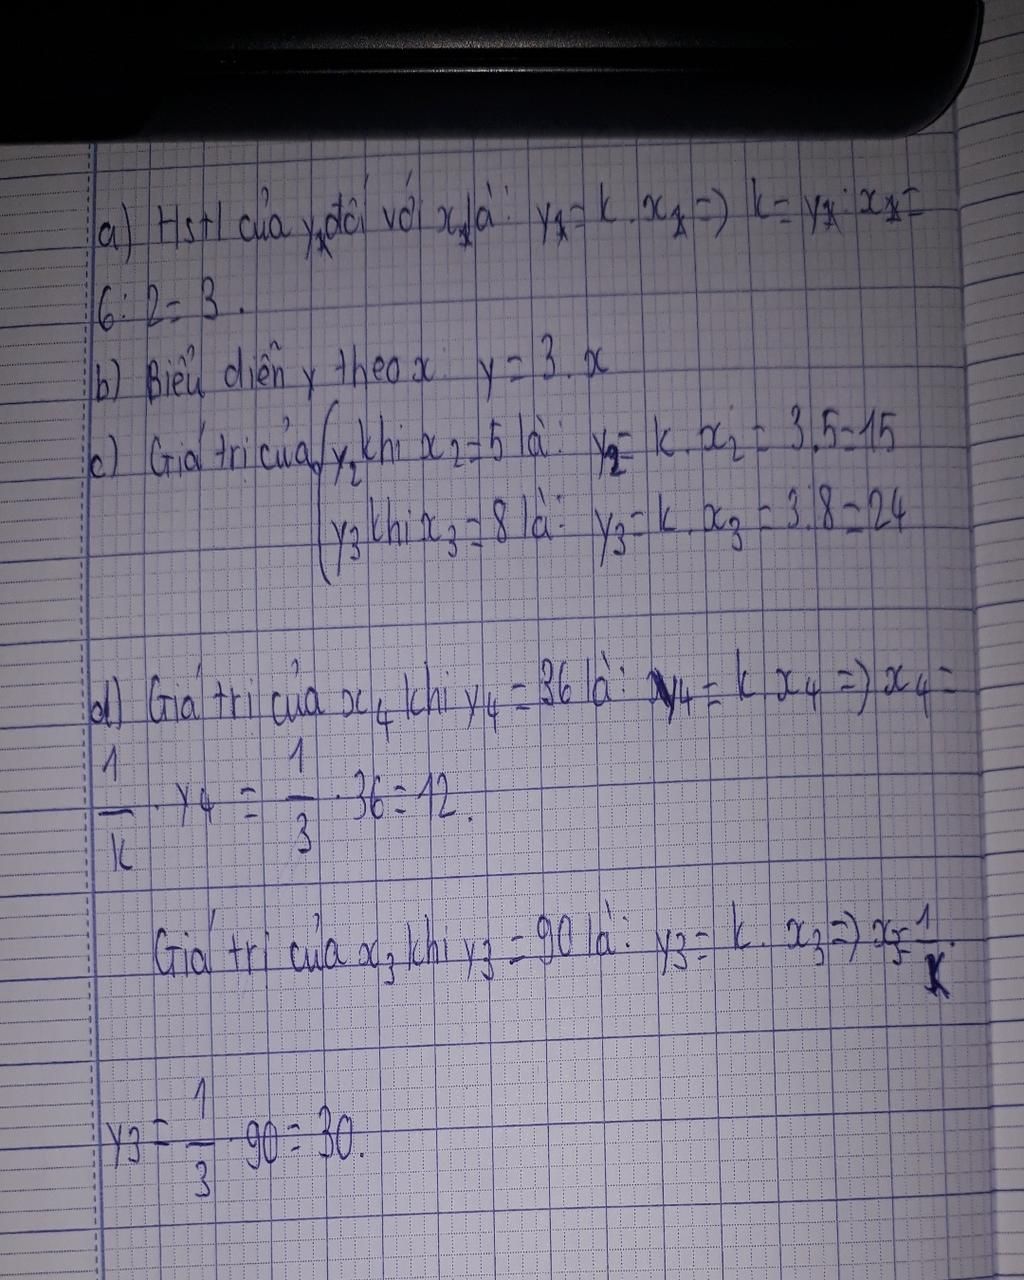 a) Hstl của y₁ đối với x₁ là: y₁ = k . x₁ => k = y₁ : x₁ =
6 : 2 = 3 .
b) Biểu diễn y theo x: y = 3 . x
c) Giá trị của y₂ khi x₂ = 5 là: y₂ = k . x₂ = 3 . 5 = 15
y₃ khi x₃ = 8 là: y₃ = k . x₃ = 3 . 8 = 24
d) Giá trị của x₄ khi y₄ = 36 là: y₄ = k x₄ => x₄ =
1/k . y₄ = 1/3 . 36 = 12.
Giá trị của x₃ khi y₃ = 90 là: y₃ = k . x₃ => x₅ = 1/k .
y₃ = 1/3 . 90 = 30.